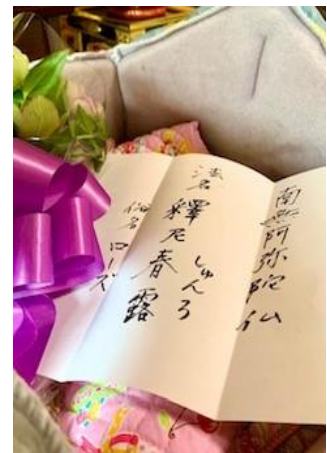 南無阿弥陀仏
法名 釋尼春露
しゅんろ
俗名 ローズ